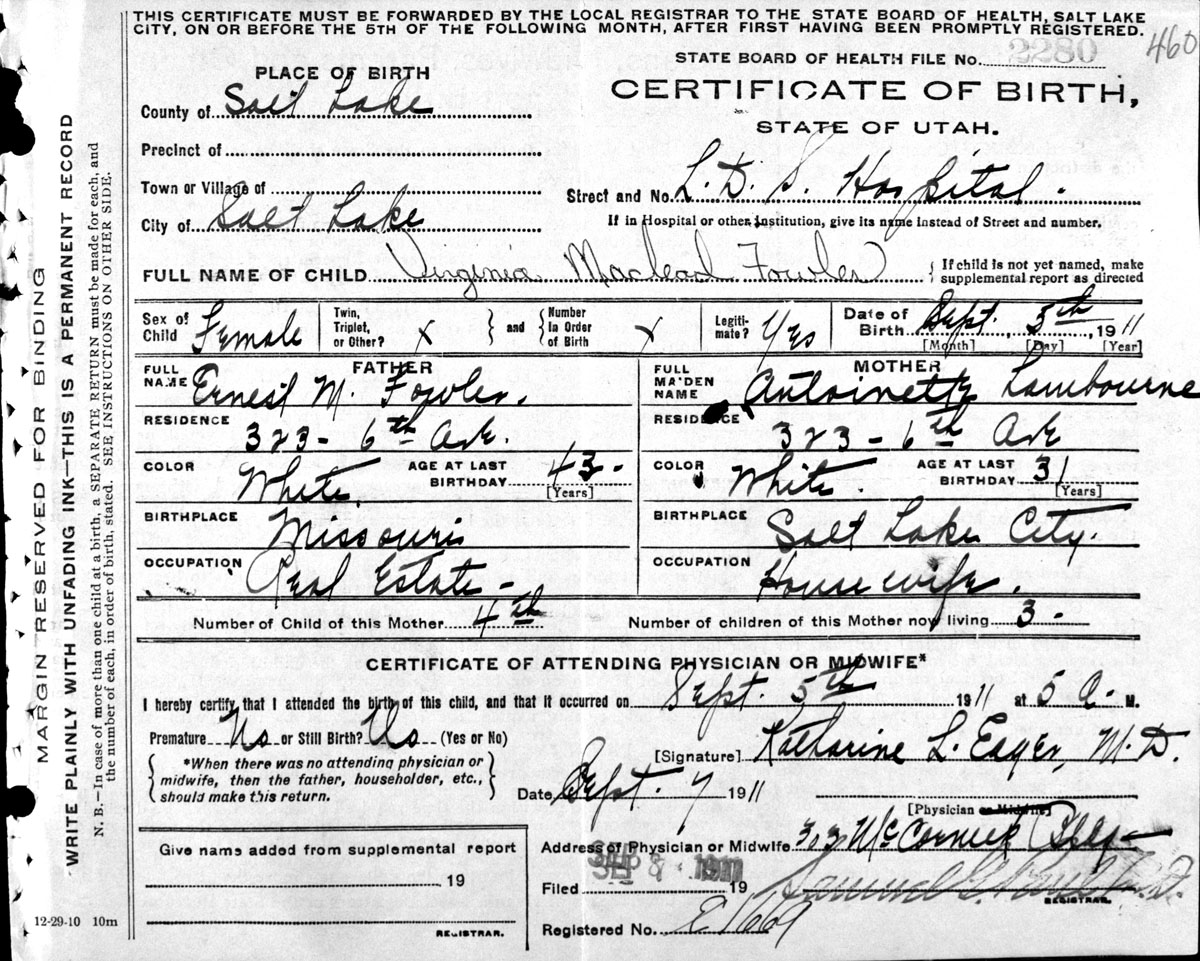 THIS CERTIFICATE MUST BE FORWARDED BY THE LOCAL REGISTRAR TO THE STATE BOARD OF HEALTH, SALT LAKE
CITY, ON OR BEFORE THE 5TH OF THE FOLLOWING MONTH, AFTER FIRST HAVING BEEN PROMPTLY REGISTERED.
460
STATE BOARD OF HEALTH FILE No. 2280
PLACE OF BIRTH
CERTIFICATE OF BIRTH,
STATE OF UTAH.
County of Salt Lake
Precinct of
Town or Village of
Street and No. L. D. S. Hospital.
City of Salt Lake
If in Hospital or other Institution, give its name instead of Street and number.
FULL NAME OF CHILD Virginia Macleod Fowler
{ If child is not yet named, make
supplemental report as directed
Sex of Child Female
Twin, Triplet, or Other? X } and { Number In Order of Birth X
Legiti-mate? Yes
Date of Birth Sept. 5th, 1911
[Month] [Day] [Year]
FATHER
FULL NAME Ernest M. Fowler.
RESIDENCE 323 - 6th Ave.
COLOR White AGE AT LAST BIRTHDAY 43 -
[Years]
BIRTHPLACE Missouri
OCCUPATION Real Estate -
MOTHER
FULL MAIDEN NAME Antoinette Lambourne
RESIDENCE 323 - 6th Ave
COLOR White. AGE AT LAST BIRTHDAY 31
[Years]
BIRTHPLACE Salt Lake City.
OCCUPATION Housewife.
Number of Child of this Mother 4th
Number of children of this Mother now living 3 -
CERTIFICATE OF ATTENDING PHYSICIAN OR MIDWIFE*
I hereby certify that I attended the birth of this child, and that it occurred on Sept. 5th 1911 at 5 a - M.
Premature No or Still Birth? No (Yes or No)
{ *When there was no attending physician or
midwife, then the father, householder, etc.,
should make this return. }
[Signature] Katharine L. Eager, M.D.
Date Sept. 7 1911
[Physician or Midwife]
Address of Physician or Midwife 323 McCornick Bldg -
Filed SEP 8 1911 19
Samuel G. Paul M.D.
REGISTRAR.
Registered No.
Give name added from supplemental report
19
REGISTRAR.
12-29-10 10m
MARGIN RESERVED FOR BINDING
WRITE PLAINLY WITH UNFADING INK—THIS IS A PERMANENT RECORD
N. B.—In case of more than one child at a birth, a SEPARATE RETURN must be made for each, and
the number of each, in order of birth, stated. SEE INSTRUCTIONS ON OTHER SIDE.